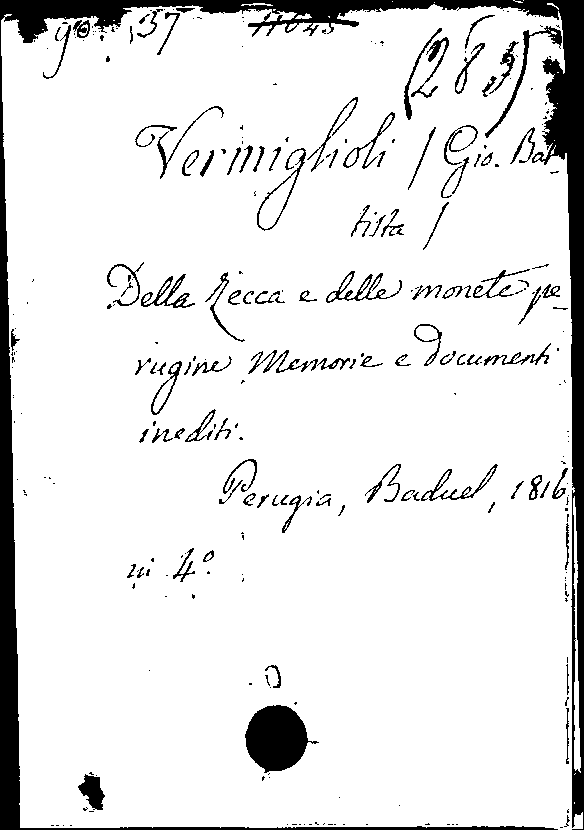 90. , 37 11645
(283)
Vermiglioli / Gio. Bat-
tista /
Della Zecca e delle monete pe-
rugine Memorie e documenti
inediti.
Perugia, Baduel, 1816
in 4º.